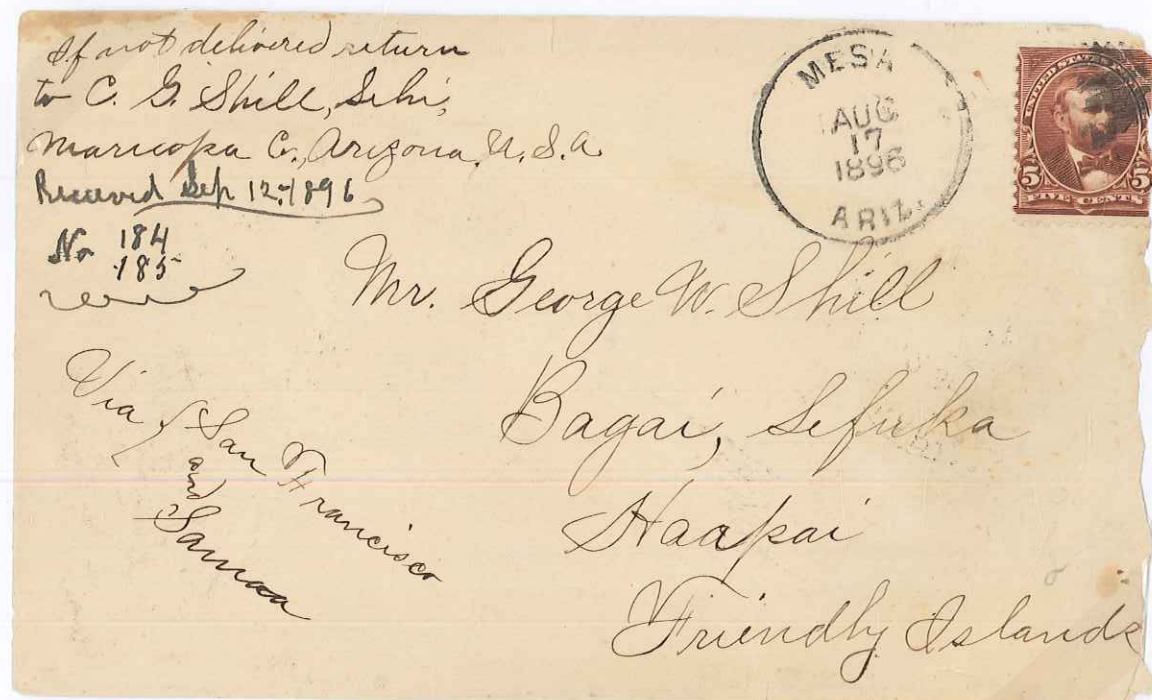 If not delivered return
to C. G. Shill, Lehi,
Maricopa Co., Arizona, U.S.A
Received Sep 12-1896
No 184
185
MESA
AUG
17
1896
ARIZ.
UNITED STATES
5 5
FIVE CENTS
Mr. George W. Shill
Bagai, Lefuka
Haapai
Friendly Islands
Via { San Francisco
and
Samoa